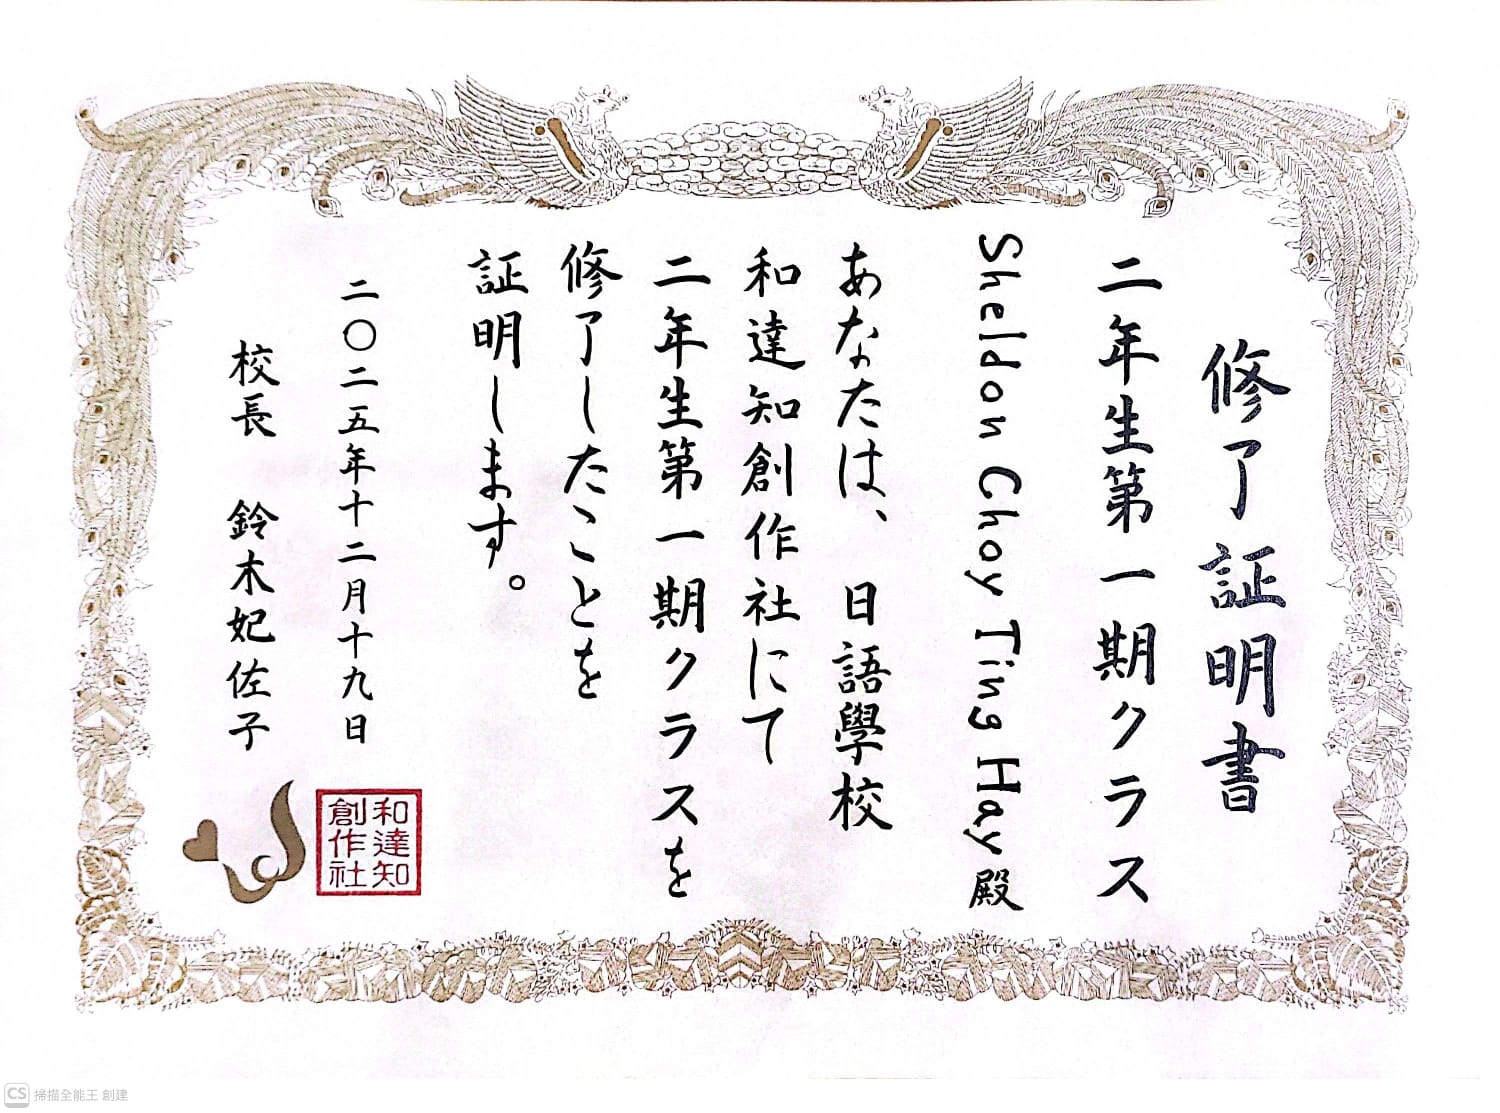 修了証明書
二年生第一期クラス
Sheldon Choy Ting Hay殿
あなたは、日語學校
和達知創作社にて
二年生第一期クラスを
修了したことを
証明します。
二〇二五年十二月十九日
校長 鈴木妃佐子
和達知
創作社
CS 掃描全能王 創建